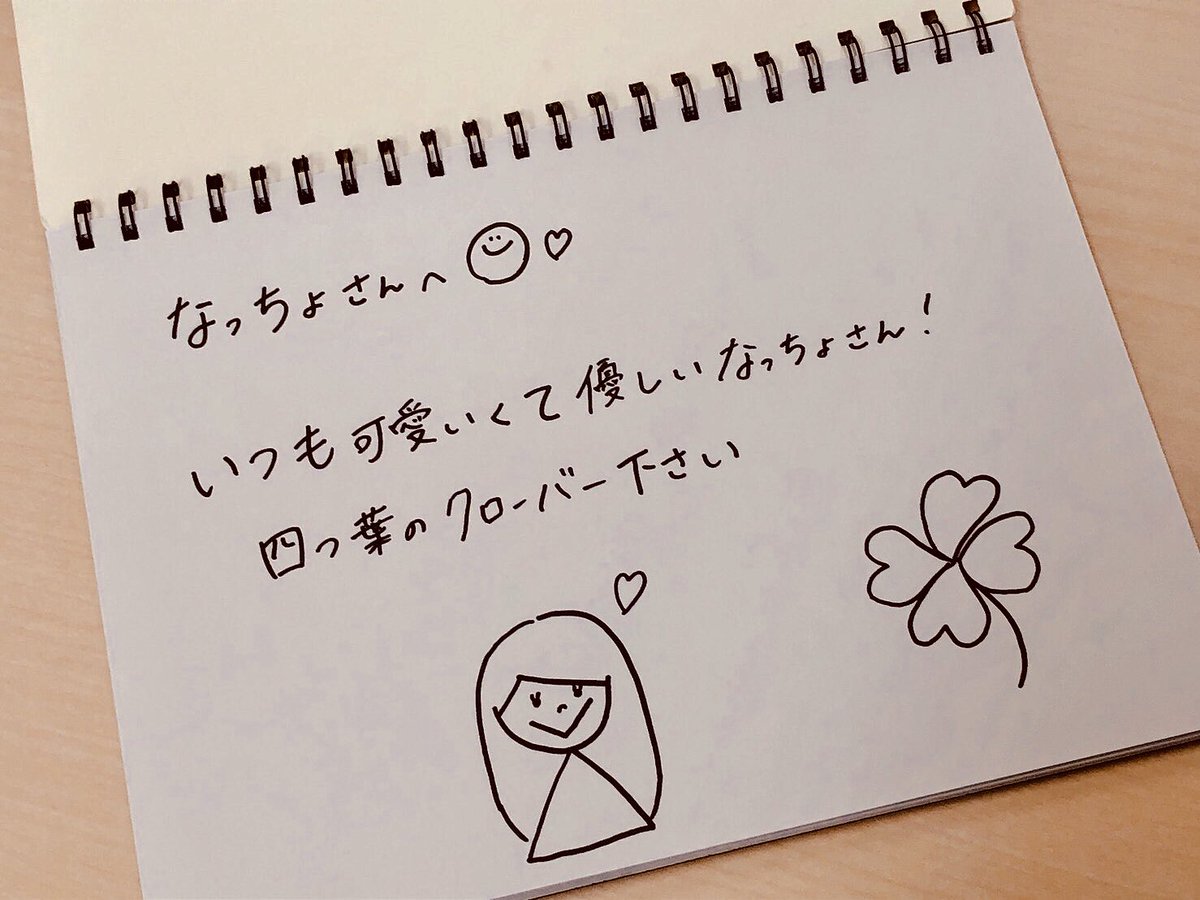 なっちょさんへ
いつも可愛いくて優しいなっちょさん!
四つ葉のクローバー下さい